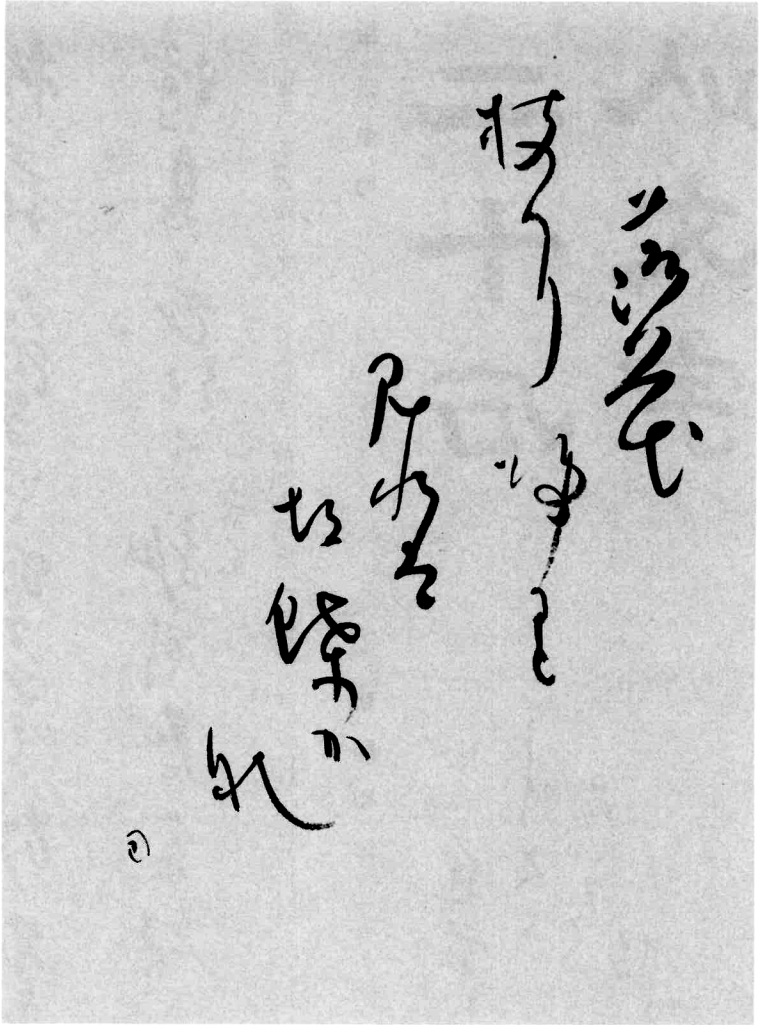 落花
枝に帰ると
見れは
胡蝶か
な